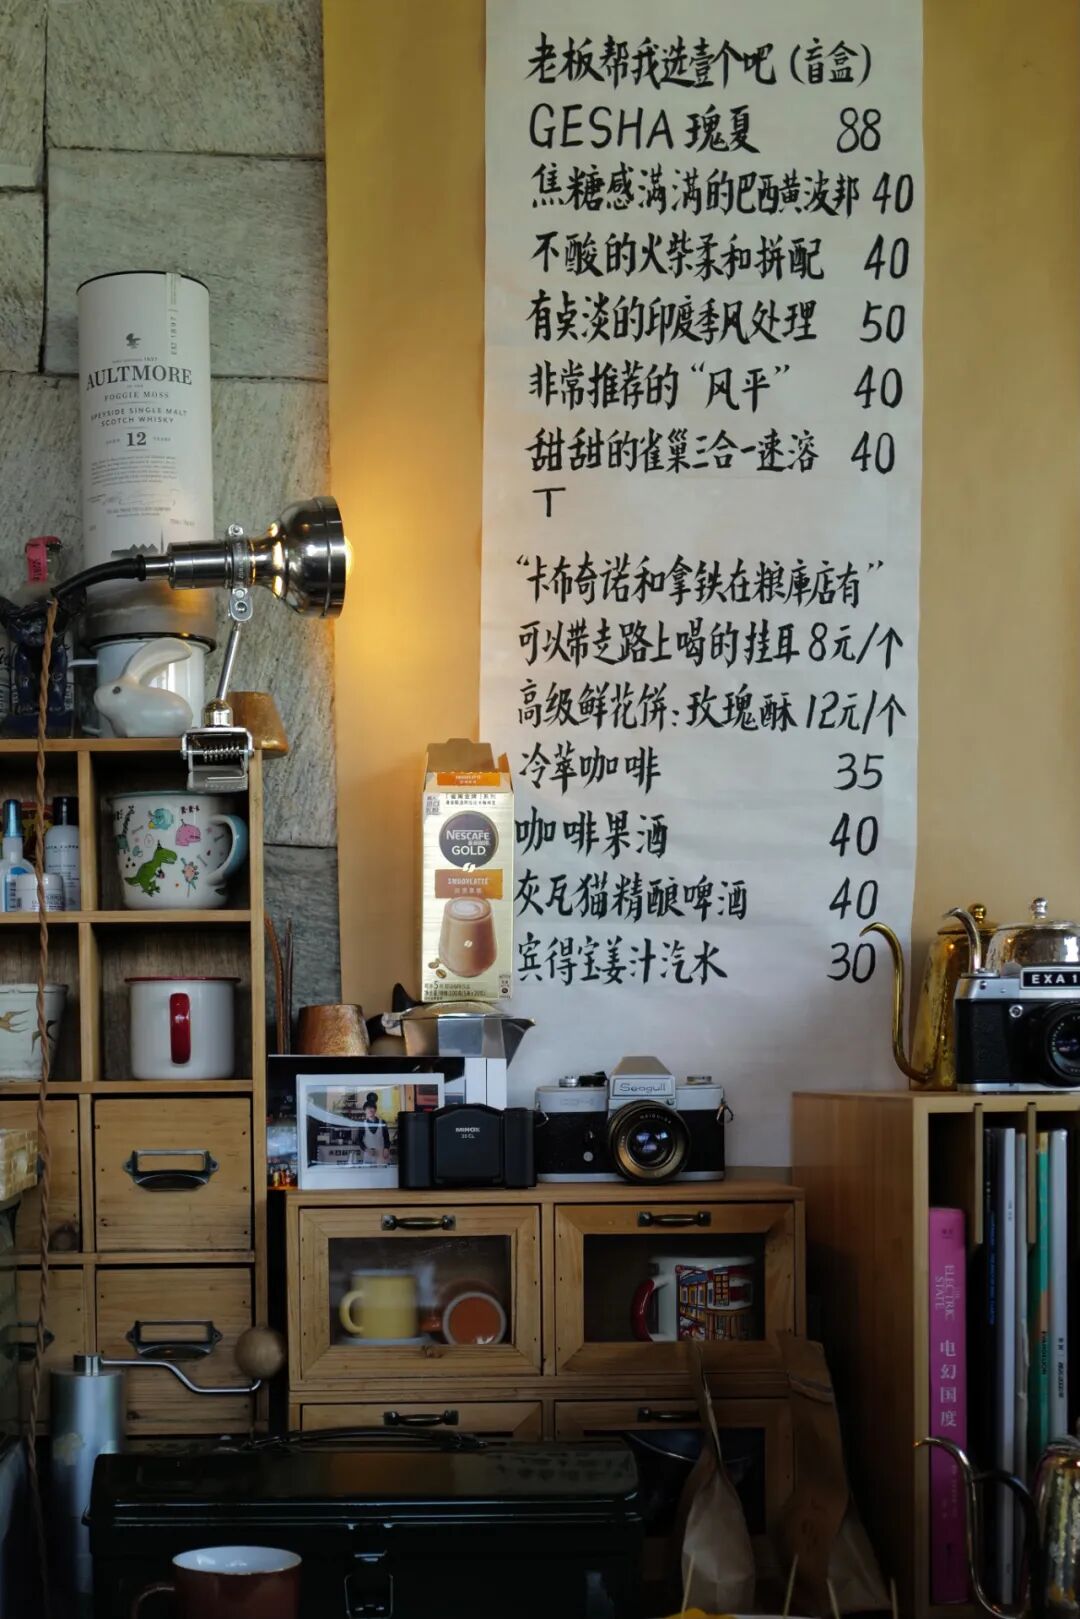 老板帮我选壹个吧（盲盒）
GESHA 瑰夏 88
焦糖感满满的巴西黄波邦 40
不酸的火柴柔和拼配 40
有点淡的印度季风处理 50
非常推荐的“风平” 40
甜甜的雀巢三合一速溶 40
T
“卡布奇诺和拿铁在粮庫店有”
可以带走路上喝的挂耳 8元/个
高级鲜花饼：玫瑰酥 12元/个
冷萃咖啡 35
咖啡果酒 40
灰瓦猫精酿啤酒 40
宾得宝姜汁汽水 30
EST 1897
AULTMORE
OF THE
FOGGIE MOSS
SPEYSIDE SINGLE MALT
SCOTCH WHISKY
AGED 12 YEARS
NESCAFÉ
GOLD
SMOOVLATTE
MINOX
35 GL
Seagull
EXA 1
ELECTRIC
STATE
电幻国度